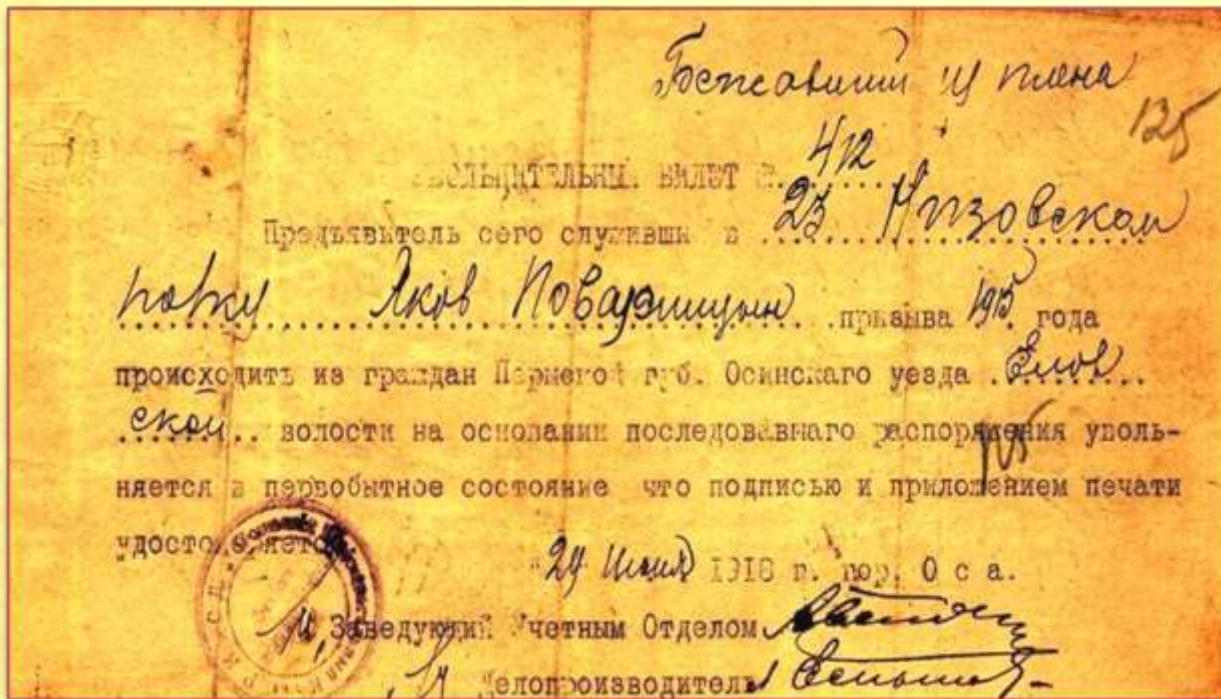 Бежавший из плена
125
УВОЛЬНИТЕЛЬНЫЙ БИЛЕТ № 412
Предъявитель сего служивший в 25 Низовском
полку Яков Поварницын призыва 1915 года
происходить из граждан Пермской губ. Осинскаго уезда Елов
ской волости на основании последовавшаго распоряжения уволь-
няется в первобытное состояние что подписью и приложением печати
удостоверяется
1918 г. гор. Оса.
Заведующий Учетным Отделом
Делопроизводитель